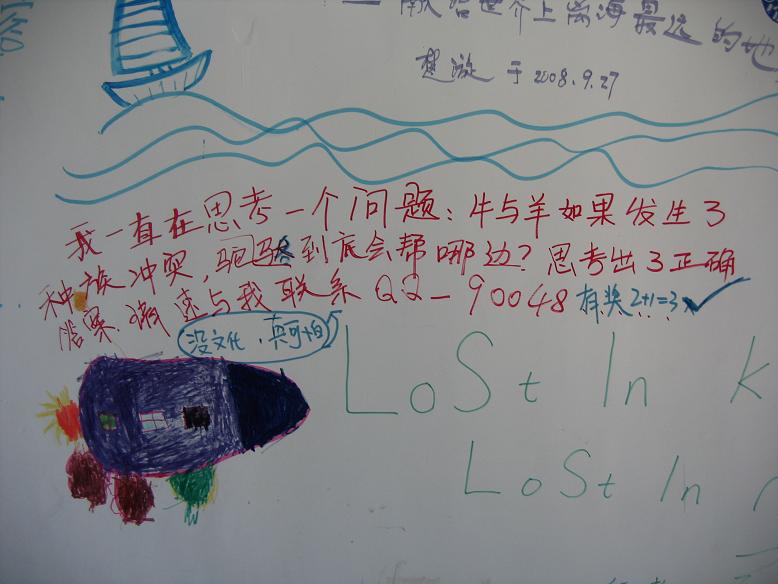 献给世界上离海最远的地
楚漩 于 2008.9.27
我一直在思考一个问题:牛与羊如果发生了
种族冲突,骆驼到底会帮哪边?思考出了正确
答案 请速与我联系 QQ-90048 有奖 2+1=3
没文化,真可怕
LoSt In k
LoSt In